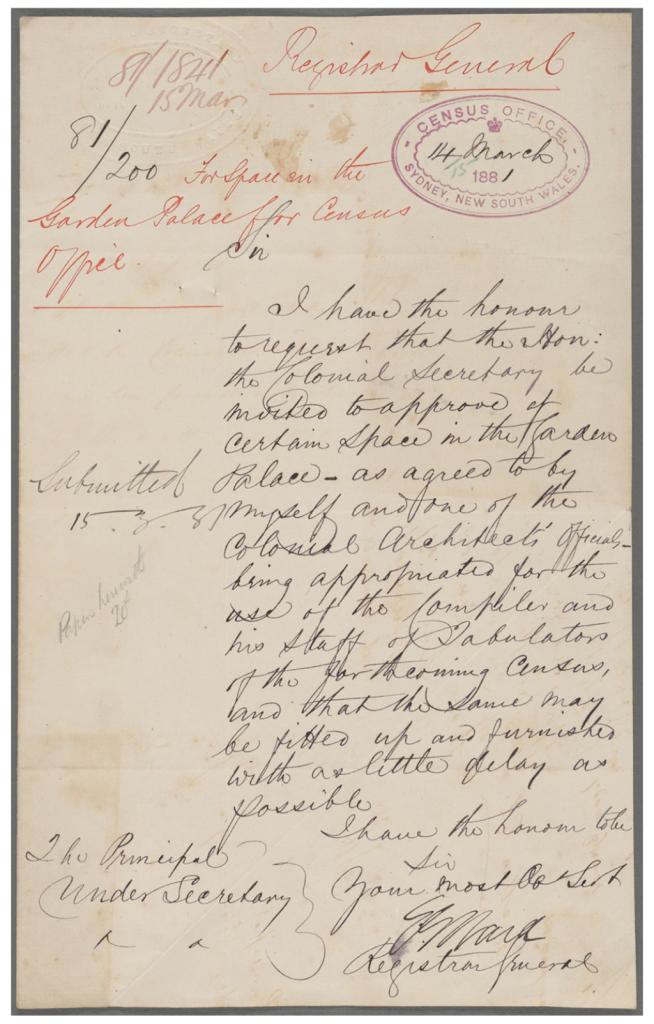 81/1841
15 Mar
Registrar General
CENSUS OFFICE,
14 March
15
1881
SYDNEY, NEW SOUTH WALES.
81/200
For space in the
Garden Palace for Census
Office.
Sir
I have the honour
to request that the Hon:
the Colonial Secretary be
invited to approve of
certain space in the Garden
Palace – as agreed to by
myself and one of the
Colonial Architects' officials –
being appropriated for the
use of the Compiler and
his staff of Tabulators
of the forthcoming Census,
and that the same may
be fitted up and furnished
with as little delay as
possible
Submitted
15.3.81
Paper herewith
I have the honour to be
Sir
Your most Ob Sert
Ward
Registrar General
The Principal
Under Secretary